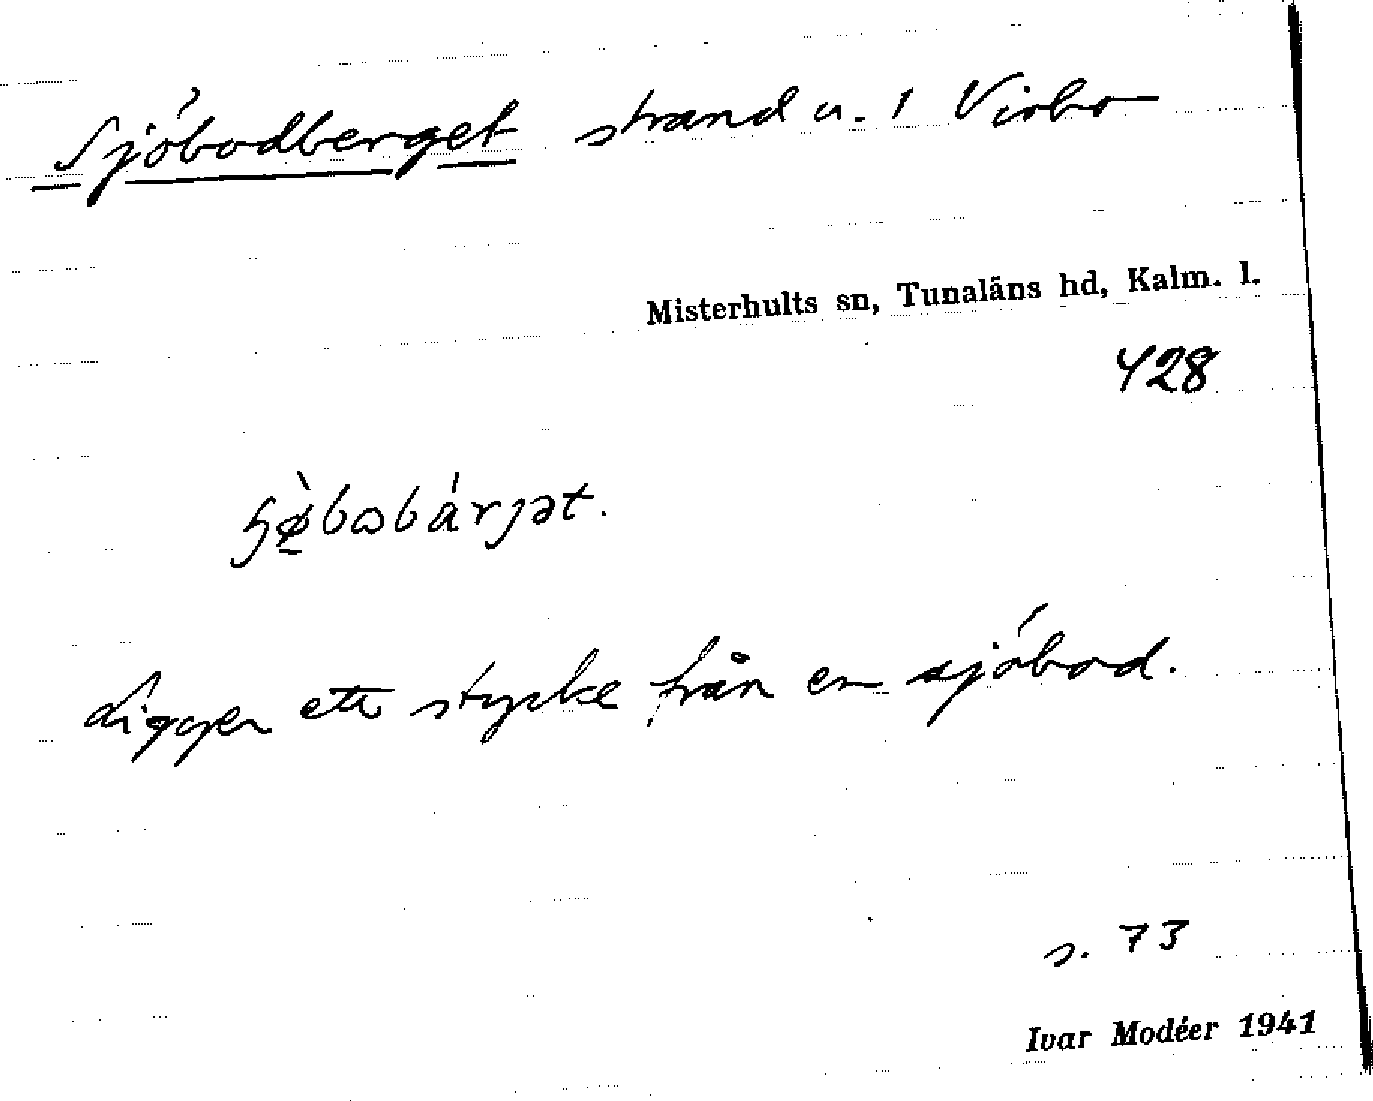 Sjöbodberget strand u. 1 Virbo
Misterhults sn, Tunaläns hd, Kalm. l.
428
Ligger ett stycke från en sjöbod.
s. 73
Ivar Modéer 1941